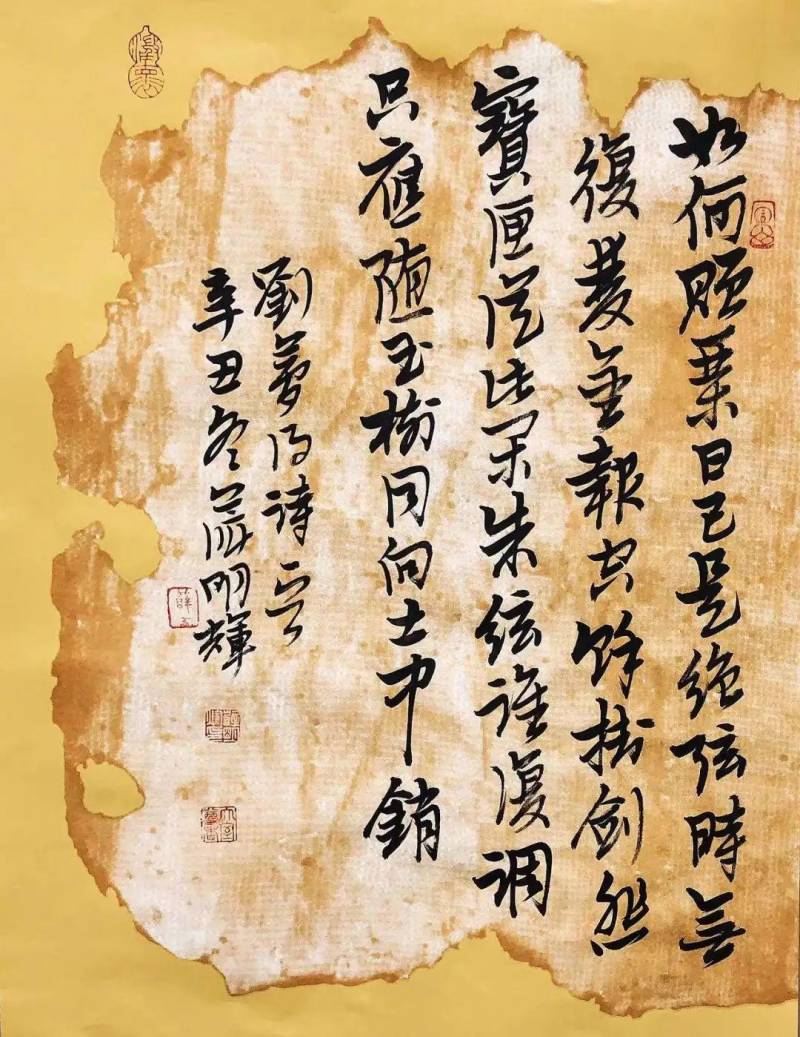 如何贈琴日已是絕弦時無
復雙金報空餘掛劍悲
寶匣從此閑朱絃誰復調
只應隨玉樹同向土中銷
劉夢得詩一首
辛丑冬薛明輝